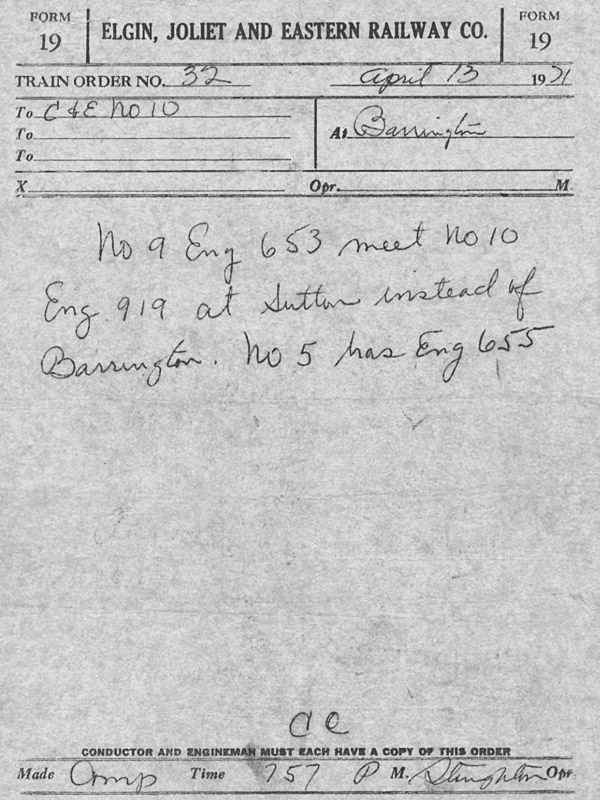 FORM 19 ELGIN, JOLIET AND EASTERN RAILWAY CO. FORM 19
TRAIN ORDER NO. 32 April 13 1971
To C & E No 10
To At Barrington
To
X Opr. M.
No 9 Eng 653 meet No 10
Eng 919 at Sutton instead of
Barrington. No 5 has Eng 655
CC
CONDUCTOR AND ENGINEMAN MUST EACH HAVE A COPY OF THIS ORDER
Made Comp Time 757 P M. Opr